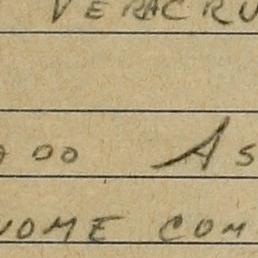 VERACRU
00 AS
NOME COM